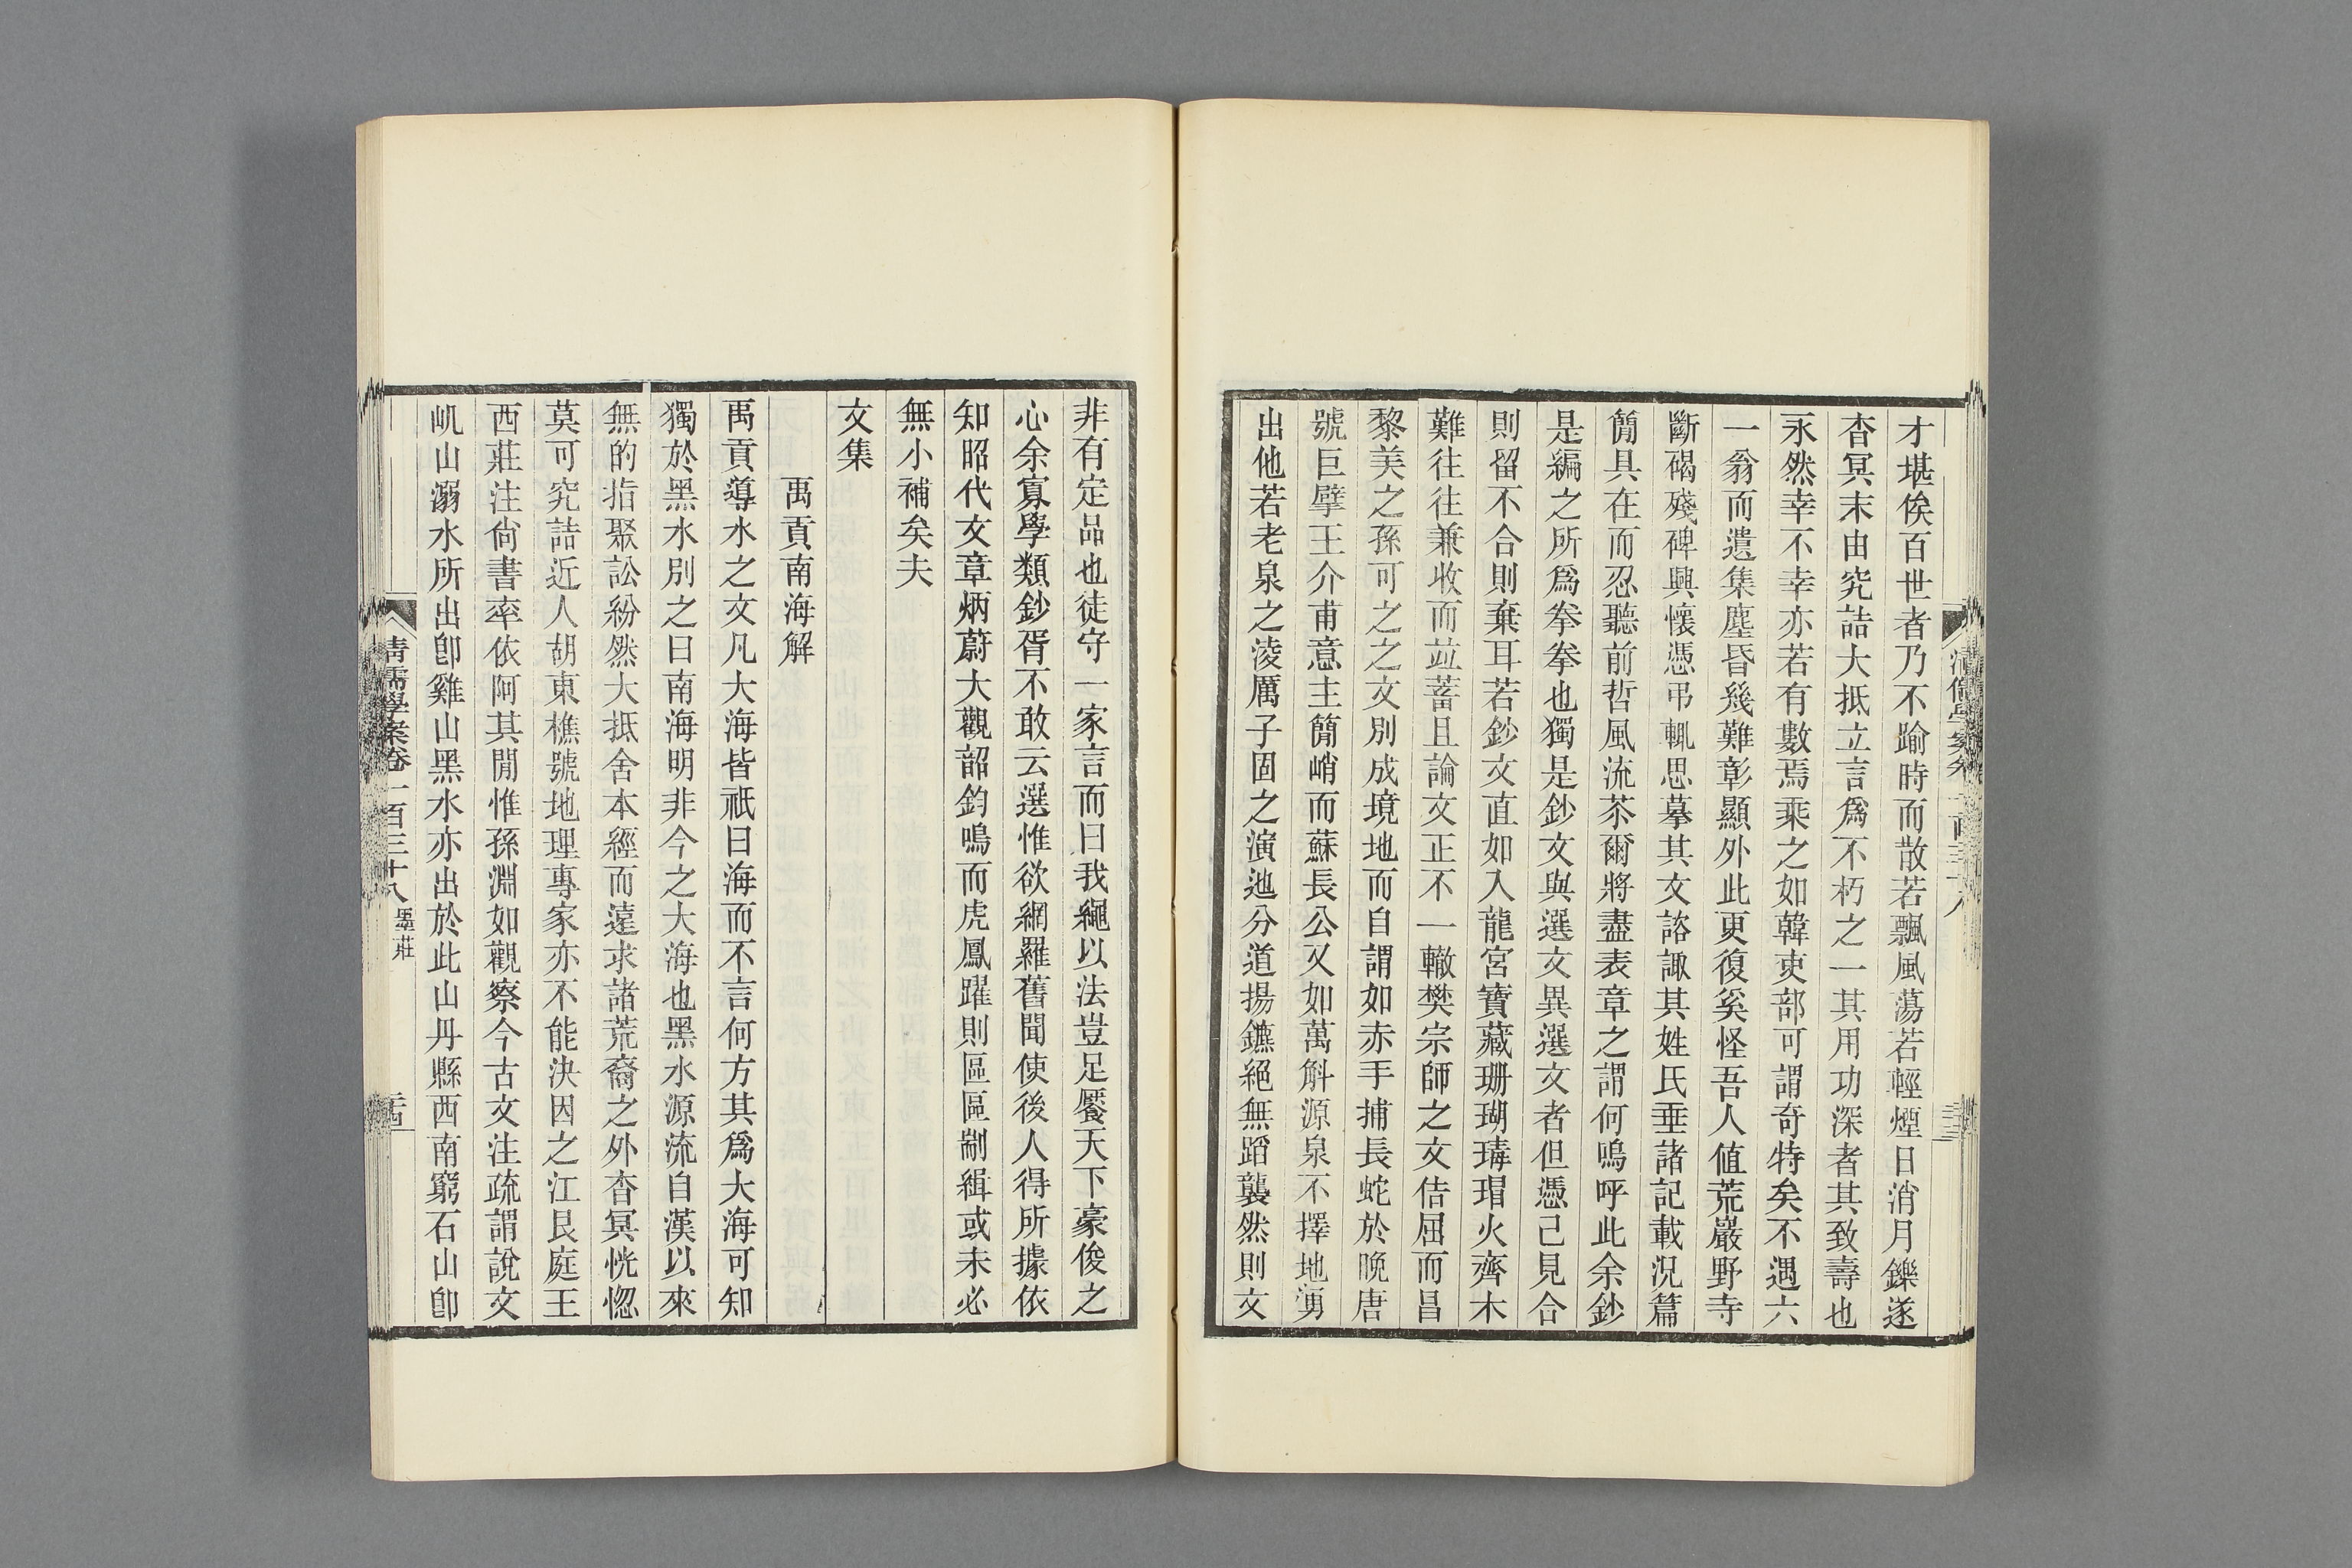 才堪俟百世者乃不踰時而散若飄風蕩若輕煙日消月鑠遂
杳冥末由究詰大抵立言爲不朽之一其用功深者其致壽也
永然幸不幸亦若有數焉乘之如韓吏部可謂奇特矣不遇六
一翁而遺集塵昏幾難彰顯外此更復奚怪吾人値荒巖野寺
斷碣殘碑興懷憑弔輒思摹其文諮諏其姓氏垂諸記載況篇
簡具在而忍聽前哲風流苶爾將盡表章之謂何嗚呼此余鈔
是編之所爲拳拳也獨是鈔文與選文異選文者但憑己見合
則留不合則棄耳若鈔文直如入龍宮寶藏珊瑚瑇瑁火齊木
難往往兼收而竝蓄且論文正不一轍樊宗師之文佶屈而昌
黎美之孫可之之文別成境地而自謂如赤手捕長蛇於晚唐
號巨擘王介甫意主簡峭而蘇長公又如萬斛源泉不擇地湧
出他若老泉之淩厲子固之演迤分道揚鑣絕無蹈襲然則文
非有定品也徒守一家言而曰我繩以法豈足饜天下豪俊之
心余寡學類鈔胥不敢云選惟欲網羅舊聞使後人得所據依
知昭代文章炳蔚大觀韶鈞鳴而虎鳳躍則區區劀緝或未必
無小補矣夫
文集
禹貢南海解
禹貢導水之文凡大海皆祇曰海而不言何方其爲大海可知
獨於黑水別之曰南海明非今之大海也黑水源流自漢以來
無的指聚訟紛然大抵舍本經而遠求諸荒裔之外杳冥恍惚
莫可究詰近人胡東樵號地理專家亦不能決因之江艮庭王
西莊注尙書率依阿其閒惟孫淵如觀察今古文注疏謂說文
屼山溺水所出卽雞山黑水亦出於此山丹縣西南窮石山卽
清儒學案卷一百三十八 墨莊